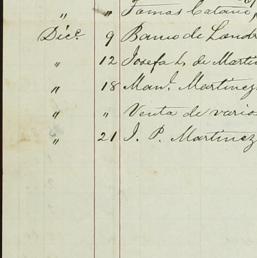 " " Tomas Cataño,
Dice. 9 Banco de Londr
" 12 Josefa L. de Marti
" 18 Manl. Martinez
" " Venta de vario
" 21 J. P. Martinez